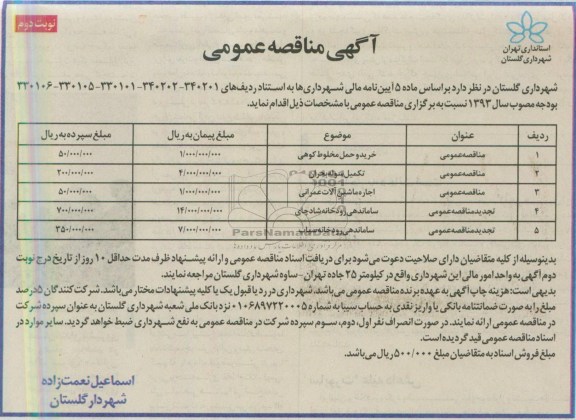 نوبت دوم
استانداری تهران
شهرداری گلستان
آگهی مناقصه عمومی
شهرداری گلستان در نظر دارد براساس ماده ۵ آیین‌نامه مالی شهرداری‌ها به استناد ردیف‌های ۳۴۰۲۰۱-۳۴۰۲۰۲-۳۳۰۱۰۱-۳۳۰۱۰۵-۳۳۰۱۰۶
بودجه مصوب سال ۱۳۹۳ نسبت به برگزاری مناقصه عمومی با مشخصات ذیل اقدام نماید.
ردیف عنوان موضوع مبلغ پیمان به ریال مبلغ سپرده به ریال
۱ مناقصه عمومی خرید و حمل مخلوط کوهی ۱/۰۰۰/۰۰۰/۰۰۰ ۵۰/۰۰۰/۰۰۰
۲ مناقصه عمومی تکمیل سوله بحران ۴/۰۰۰/۰۰۰/۰۰۰ ۲۰۰/۰۰۰/۰۰۰
۳ مناقصه عمومی اجاره ماشین آلات عمرانی ۱/۰۰۰/۰۰۰/۰۰۰ ۵۰/۰۰۰/۰۰۰
۴ تجدید مناقصه عمومی ساماندهی رودخانه شادچای ۱۴/۰۰۰/۰۰۰/۰۰۰ ۷۰۰/۰۰۰/۰۰۰
۵ تجدید مناقصه عمومی ساماندهی رودخانه سیاب ۷/۰۰۰/۰۰۰/۰۰۰ ۳۵۰/۰۰۰/۰۰۰
ParsNamadData
بدینوسیله از کلیه متقاضیان دارای صلاحیت دعوت می‌شود برای دریافت اسناد مناقصه عمومی و ارائه پیشنهاد ظرف مدت حداقل ۱۰ روز از تاریخ درج نوبت
دوم آگهی به واحد امور مالی این شهرداری واقع در کیلومتر ۲۵ جاده تهران - ساوه شهرداری گلستان مراجعه نمایند.
بدیهی است: هزینه چاپ آگهی به عهده برنده مناقصه عمومی می‌باشد، شهرداری در رد یا قبول یک یا کلیه پیشنهادات مختار می‌باشد. شرکت کنندگان ۵ درصد
مبلغ را به صورت ضمانتنامه بانکی یا واریز نقدی به حساب سیبا به شماره ۰۱۰۶۸۹۷۲۲۰۰۰۵ نزد بانک ملی شعبه شهرداری گلستان به عنوان سپرده شرکت
در مناقصه عمومی ارائه نمایند. در صورت انصراف نفر اول، دوم، سوم سپرده شرکت در مناقصه عمومی به نفع شهرداری ضبط خواهد گردید. سایر موارد در
اسناد مناقصه عمومی قید گردیده است.
مبلغ فروش اسناد به متقاضیان مبلغ ۵۰۰/۰۰۰ ریال می‌باشد.
اسماعیل نعمت‌زاده
شهردار گلستان